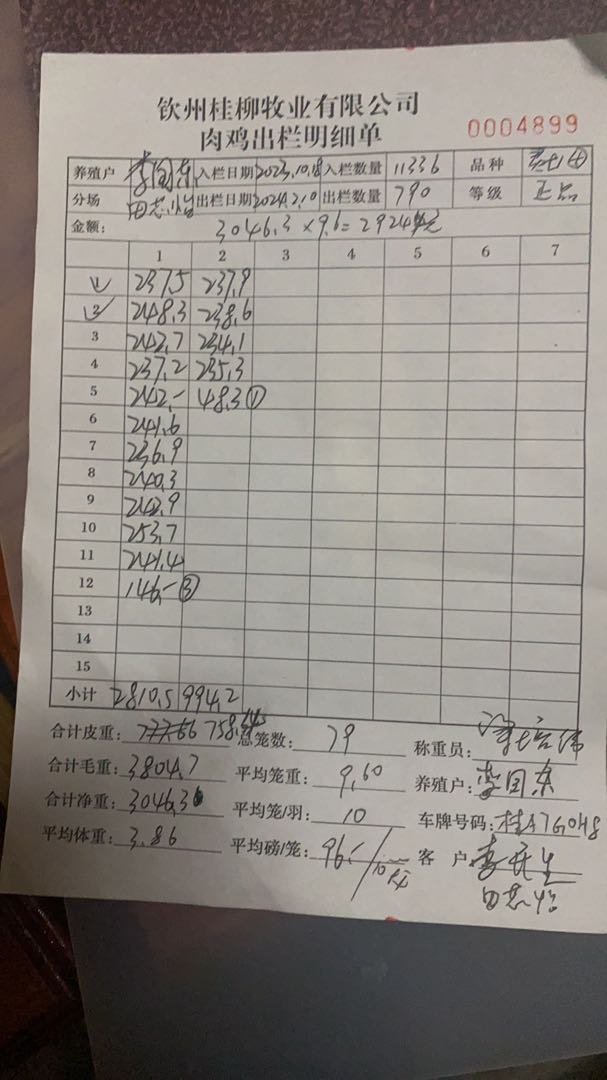 钦州桂柳牧业有限公司
肉鸡出栏明细单
0004899
养殖户 李国东 入栏日期 2023.10.8 入栏数量 11336 品种
分场 田芯怡 出栏日期 2024.2.10 出栏数量 790 等级 正品
金额: 3046.3×9.6=29244元
1 2 3 4 5 6 7
1 237.5 237.9
2 248.3 238.6
3 242.7 234.1
4 237.2 235.3
5 242.- 48.3 ①
6 241.6
7 236.9
8 240.3
9 242.9
10 253.7
11 241.4
12 146.- ③
13
14
15
小计 2810.5 994.2
合计皮重: 758.4 总笼数: 79 称重员:
合计毛重: 3804.7 平均笼重: 9.60 养殖户: 李国东
合计净重: 3046.3 平均笼/羽: 10 车牌号码: 桂A7G0H8
平均体重: 3.86 平均磅/笼: 96.- 客 户:
田芯怡